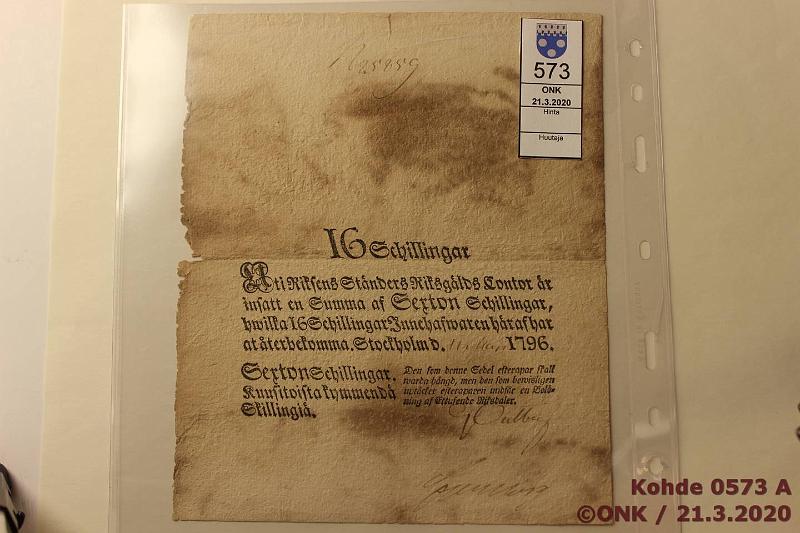 573
ONK
21.3.2020
Hinta
Huutaja
16 Schillingar
Uti Riksens Ständers Riksgälds Contor är
insatt en Summa af Sexton Schillingar,
hwilka 16 Schillingar Innehafwaren häraf har
at återbekomma. Stockholm d. 1796.
Sexton Schillingar.
Kuusitoistakymmendä
Skillingiä.
Den som denne Sedel efterapar skall
warda hängd, men den som bewisligen
uptäcker efteraparen undfår en Belö-
ning af Ettusende Riksdaler.
Kohde 0573 A
©ONK / 21.3.2020